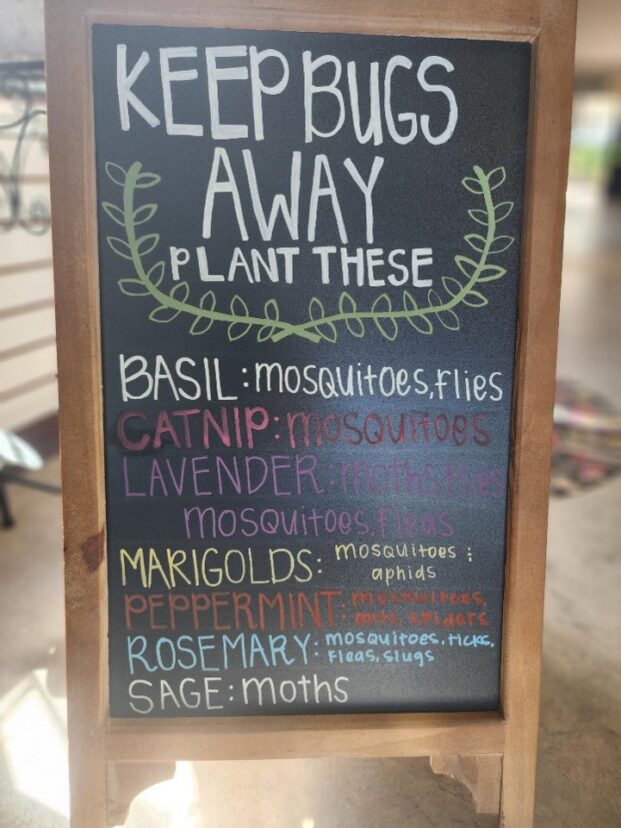 KEEP BUGS
AWAY
PLANT THESE
BASIL: mosquitoes, flies
CATNIP: mosquitoes
LAVENDER: moths, flies
mosquitoes, fleas
MARIGOLDS: mosquitoes &
aphids
PEPPERMINT: mosquitoes,
ants, spiders
ROSEMARY: mosquitoes, ticks,
fleas, slugs
SAGE: moths